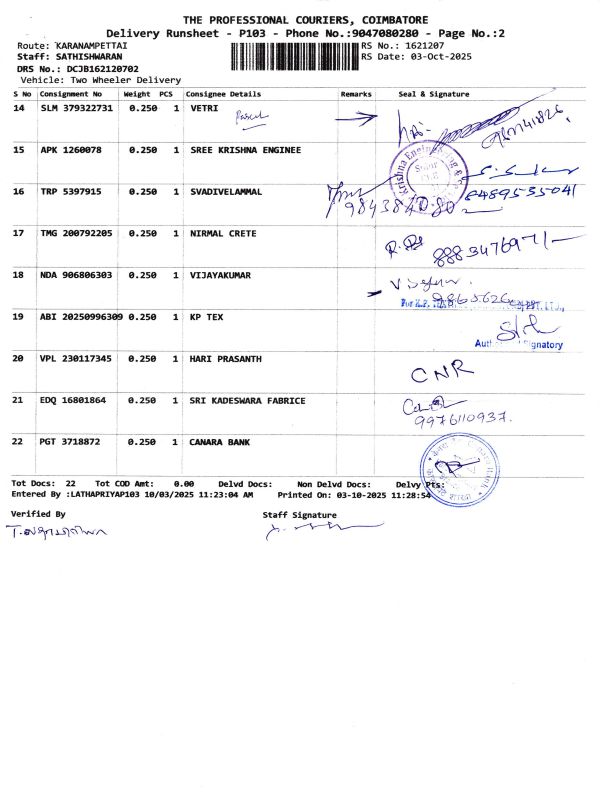 THE PROFESSIONAL COURIERS, COIMBATORE
Delivery Runsheet - P103 - Phone No.:9047080280 - Page No.:2
Route: KARANAMPETTAI RS No.: 1621207
Staff: SATHISHWARAN RS Date: 03-Oct-2025
DRS No.: DCJB162120702
Vehicle: Two Wheeler Delivery
S No Consignment No Weight PCS Consignee Details Remarks Seal & Signature
14 SLM 379322731 0.250 1 VETRI
15 APK 1260078 0.250 1 SREE KRISHNA ENGINEE
16 TRP 5397915 0.250 1 SVADIVELAMMAL
17 TMG 200792205 0.250 1 NIRMAL CRETE
18 NDA 906806303 0.250 1 VIJAYAKUMAR
19 ABI 20250996309 0.250 1 KP TEX
Signatory
20 VPL 230117345 0.250 1 HARI PRASANTH CNR
21 EDQ 16801864 0.250 1 SRI KADESWARA FABRICE
9976110937.
22 PGT 3718872 0.250 1 CANARA BANK
Tot Docs: 22 Tot COD Amt: 0.00 Delvd Docs: Non Delvd Docs: Delvy Pts:
Entered By :LATHAPRIYAP103 10/03/2025 11:23:04 AM Printed On: 03-10-2025 11:28:54
Verified By Staff Signature